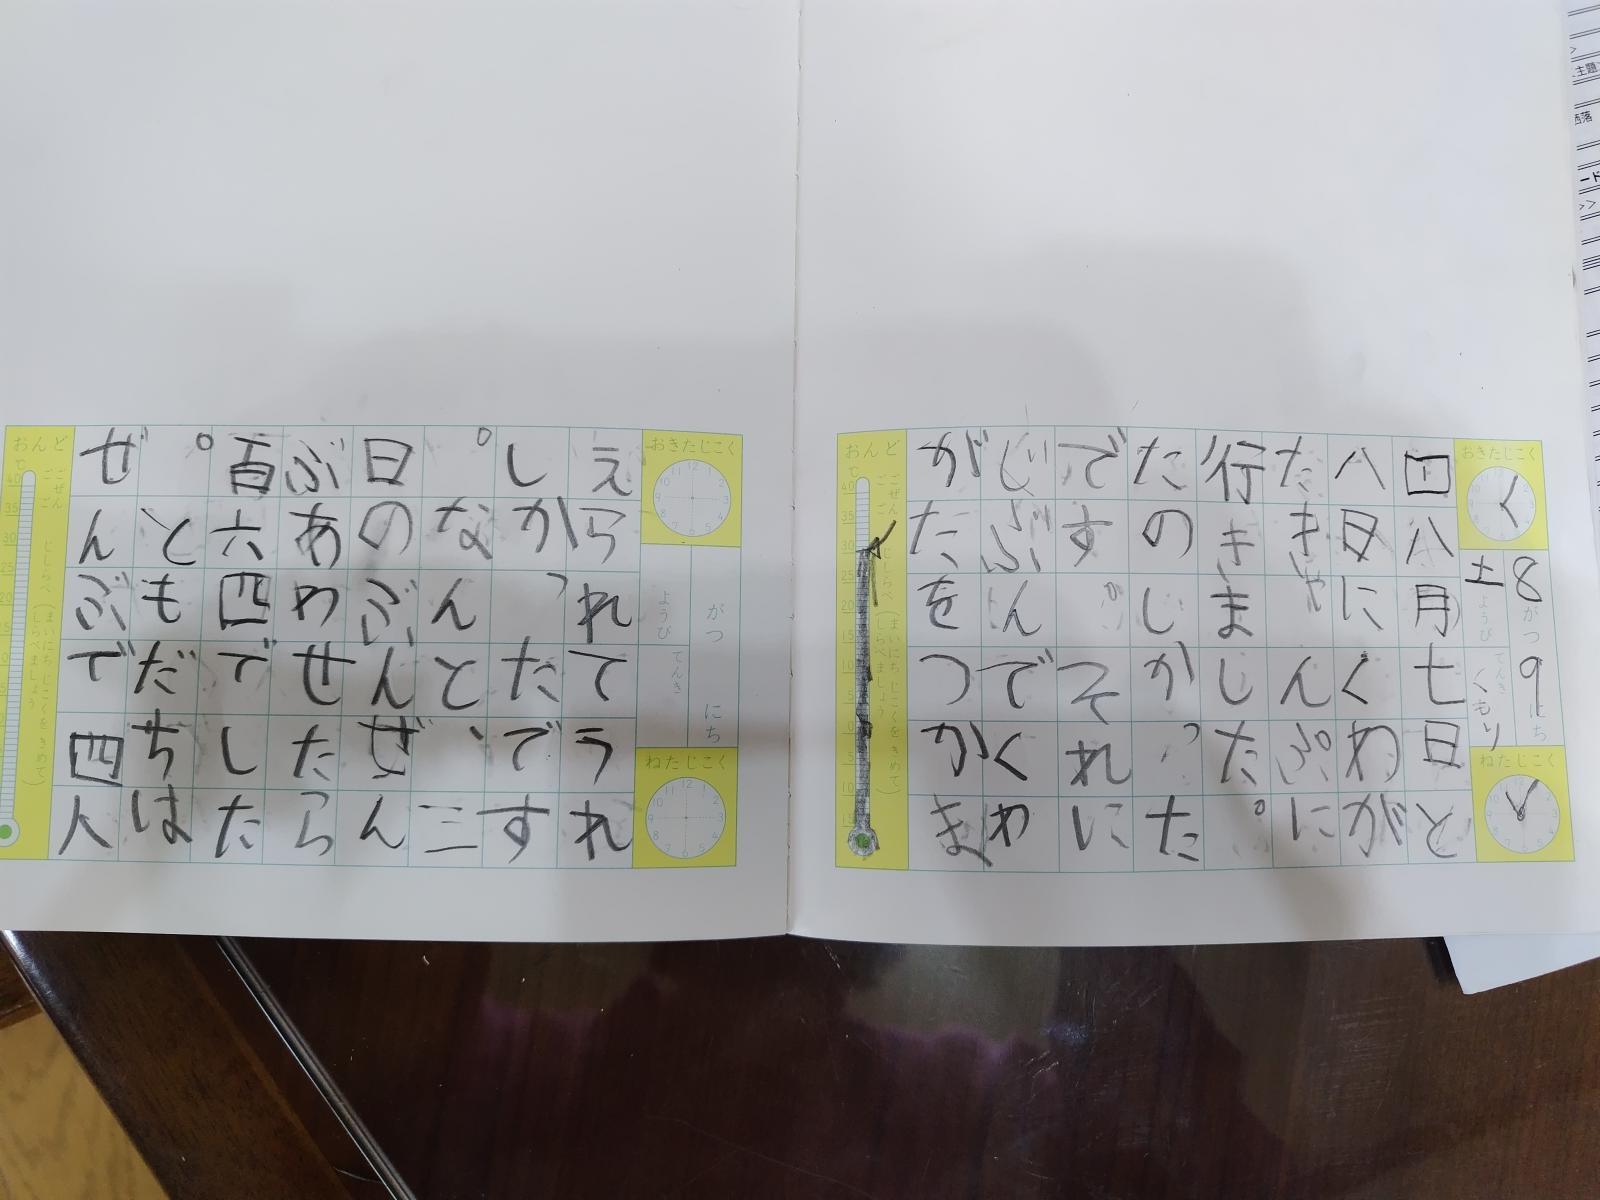 おきたじこく
8がつ9にち
土ようび
てんき くもり
ねたじこく
八月七日と
八日にくわが
たきゃんぷに
行きました。
たのしかった
です。それに
じぶんでくわ
がたをつかま
おんど
℃
ごぜん
ごご
じしらべ
(まいにちじこくをきめて
しらべましょう)
おきたじこく
がつ にち
ようび
てんき
ねたじこく
えられてうれ
しかったです
。なんと、三
日のぶんぜん
ぶあわせたら
百六四でした
。ともだちは
ぜんぶで四人
おんど
℃
ごぜん
ごご
じしらべ
(まいにちじこくをきめて
しらべましょう)
主題